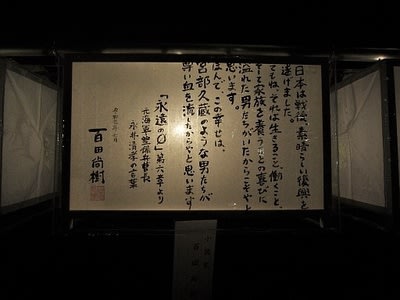 日本は戦後、素晴らしい復興を
遂げました。
でもね、それは生きること、働くこと、
そして家族を養うことの喜びに
溢れた男たちがいたからこそやと
思います。
ほんで、この幸せは、
宮部久蔵のような男たちが
尊い血を流したからやと思います
「永遠の0」第六章より
元海軍整備兵曹長
永井清孝の言葉
百田尚樹
小説家